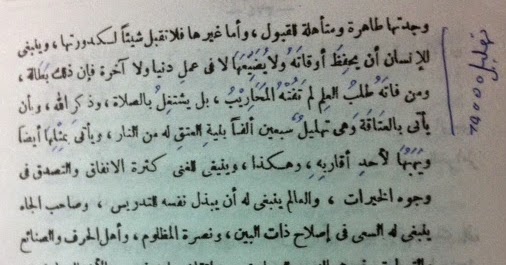 وجدتها طاهرة ومتأهلة للقبول ، وأما غيرها فلا تقبل شيئاً لكدورتها ، وينبغى
للإنسان أن يحفَظَ أوقاتَهُ ولا يُضَيِّعَهَا لا فى عمل دنيا ولا آخرة فإن ذلك بَطَالة ،
ومن فاتَهُ طلبُ العلم لم تَفُتْهُ المَحَاريبُ ، بل يشتغلُ بالصلاة ، وذكر الله ، وبأن
يأتى بالعتَاقَة وهى تهليلُ سبعين ألفاً بنية العتق له من النار ، ويأتى بمثلها أيضا
ويَهَبُهَا لأحدِ أقاربِهِ ، وهـكذا ، وينبغى للغنى كثرة الانفاق والتصدق فى
وجوه الخيرات ، والعالم ينبغى له أن يبذل نفسه للتدريس ، وصاحب الجاه
ينبغى له السعى فى إصلاح ذات البين ، ونصرة المظلوم ، وأهل الحرف والصنائع
تهليل